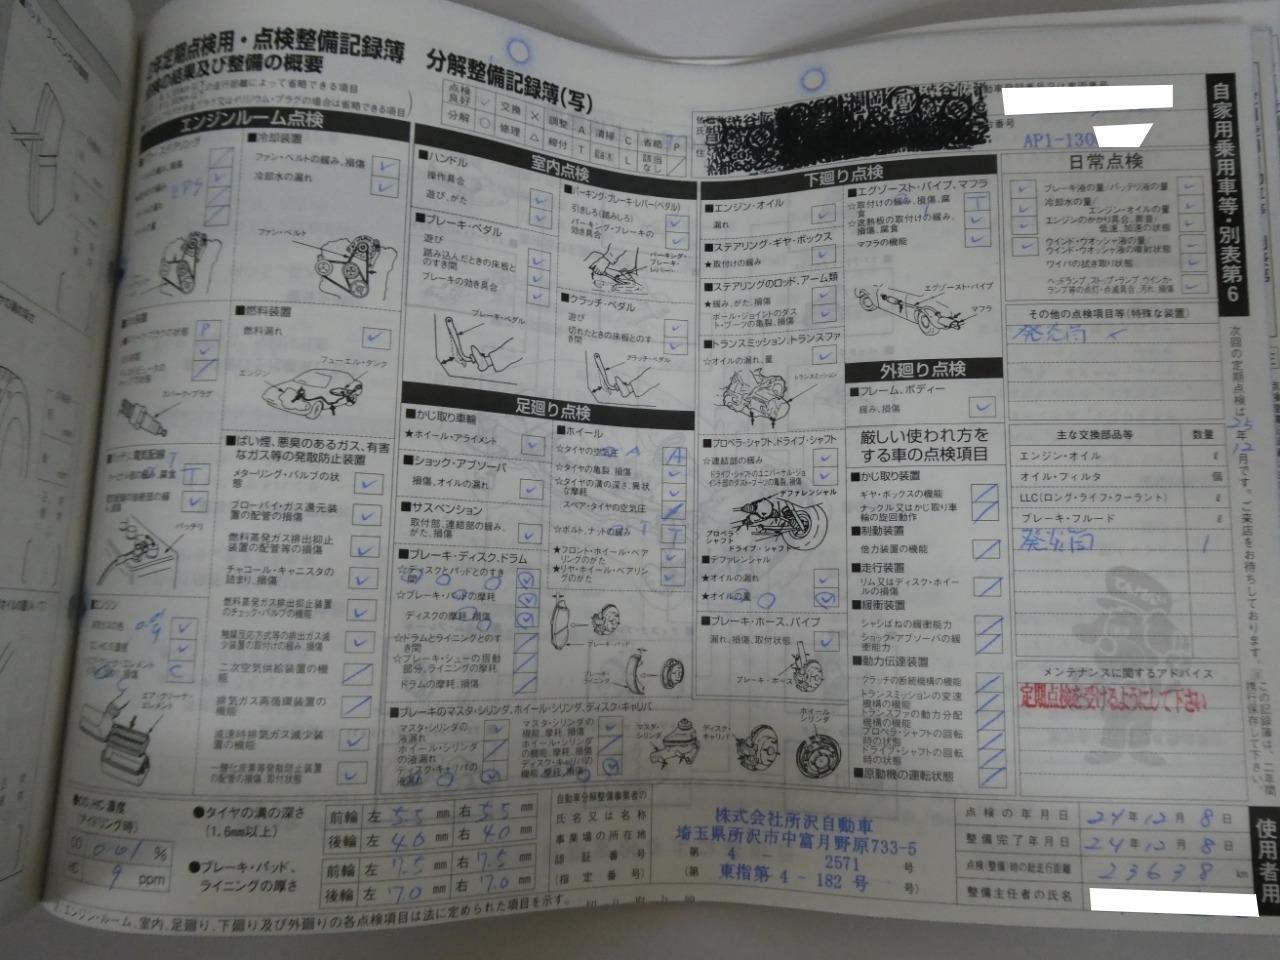 年定期点検用・点検整備記録簿
分解整備記録簿(写)
点検の結果及び整備の概要
の走行距離によって省略できる項目
プラグ又はイリジウム・プラグの場合は省略できる項目
点検良好 ✓ 交換 × 調整 A 清掃 C 省略 P
分解 ○ 修理 △ 締付 T 給油(水) L 該当なし /
AP1-130
自家用乗用車等・別表第6
エンジンルーム点検
■冷却装置
ファン・ベルトの緩み、損傷
冷却水の漏れ
EPS
ファン・ベルト
■燃料装置
燃料漏れ
フューエル・タンク
エンジン
スパーク・プラグ
バッテリ
■ばい煙、悪臭のあるガス、有害なガス等の発散防止装置
メターリング・バルブの状態
ブローバイ・ガス還元装置の配管の損傷
燃料蒸発ガス排出抑止装置の配管等の損傷
チャコール・キャニスタの詰まり、損傷
燃料蒸発ガス排出抑止装置のチェック・バルブの機能
触媒反応方式等の排出ガス減少装置の取付けの緩み、損傷
二次空気供給装置の機能
排気ガス再循環装置の機能
減速時排気ガス減少装置の機能
一酸化炭素等発散防止装置の配管の損傷、取付状態
エア・クリーナ・エレメント
室内点検
■ハンドル
操作具合
遊び、がた
■ブレーキ・ペダル
遊び
踏み込んだときの床板とのすき間
ブレーキの効き具合
ブレーキ・ペダル
■パーキング・ブレーキ・レバー(ペダル)
引きしろ(踏みしろ)
パーキング・ブレーキの効き具合
パーキング・ブレーキ・レバー
■クラッチ・ペダル
遊び
切れたときの床板とのすき間
クラッチ・ペダル
足廻り点検
■かじ取り車輪
★ホイール・アライメント
■ショック・アブソーバ
損傷、オイルの漏れ
■サスペンション
取付部、連結部の緩み、がた、損傷
■ブレーキ・ディスク、ドラム
☆ディスクとパッドとのすき間
☆ブレーキ・パッドの摩耗
ディスクの摩耗、損傷
☆ドラムとライニングとのすき間
☆ブレーキ・シューの摺動部分、ライニングの摩耗
ドラムの摩耗、損傷
■ホイール
☆タイヤの空気圧
☆タイヤの亀裂、損傷
☆タイヤの溝の深さ、異状な摩耗
スペア・タイヤの空気圧
☆ボルト、ナットの緩み
★フロント・ホイール・ベアリングのがた
★リヤ・ホイール・ベアリングのがた
ブレーキ・パッド
ブレーキ・ライニング
■ブレーキのマスタ・シリンダ、ホイール・シリンダ、ディスク・キャリパ
マスタ・シリンダの液漏れ
ホイール・シリンダの液漏れ
ディスク・キャリパの液漏れ
マスタ・シリンダの機能、摩耗、損傷
ホイール・シリンダの機能、摩耗、損傷
ディスク・キャリパの機能、摩耗、損傷
マスタ・シリンダ
ディスク・キャリパ
ホイール・シリンダ
下廻り点検
■エンジン・オイル
漏れ
■ステアリング・ギヤ・ボックス
★取付けの緩み
■ステアリングのロッド、アーム類
★緩み、がた、損傷
ボール・ジョイントのダスト・ブーツの亀裂、損傷
■トランスミッション、トランスファ
☆オイルの漏れ、量
トランスミッション
■プロペラ・シャフト、ドライブ・シャフト
☆連結部の緩み
ドライブ・シャフトのユニバーサル・ジョイント部のダスト・ブーツの亀裂、損傷
デファレンシャル
プロペラ・シャフト
ドライブ・シャフト
■デファレンシャル
★オイルの漏れ
★オイルの量
■ブレーキ・ホース、パイプ
漏れ、損傷、取付状態
ブレーキ・ホース
■エグゾースト・パイプ、マフラ
☆取付けの緩み、損傷、腐食
☆遮熱板の取付けの緩み、損傷、腐食
マフラの機能
エグゾースト・パイプ
マフラ
外廻り点検
■フレーム、ボディー
緩み、損傷
厳しい使われ方をする車の点検項目
■かじ取り装置
ギヤ・ボックスの機能
ナックル又はかじ取り車輪の旋回動作
■制動装置
倍力装置の機能
■走行装置
リム又はディスク・ホイールの損傷
■緩衝装置
シャシばねの緩衝能力
ショック・アブソーバの緩衝能力
■動力伝達装置
クラッチの断続機構の機能
トランスミッションの変速機構の機能
トランスファの動力分配機構の機能
プロペラ・シャフトの回転時の状態
ドライブ・シャフトの回転時の状態
■原動機の運転状態
日常点検
ブレーキ液の量/バッテリ液の量
冷却水の量/エンジン・オイルの量
エンジンのかかり具合、異音/低速、加速の状態
ウインド・ウオッシャ液の量/ウインド・ウオッシャ液の噴射状態
ワイパの拭き取り状態
ヘッドランプ、ストップ・ランプ、ウインカ・ランプ等の点灯・点滅具合、汚れ、損傷
その他の点検項目等(特殊な装置)
発炎筒 ×
主な交換部品等 数量
エンジン・オイル ℓ
オイル・フィルタ 個
LLC(ロング・ライフ・クーラント) ℓ
ブレーキ・フルード ℓ
発炎筒 1
メンテナンスに関するアドバイス
定期点検を受けるようにして下さい
次回の定期点検は25年12月です。ご来店をお待ちしております。
この記録簿は、二年間携行保存して下さい。
使用者用
●CO、HC濃度(アイドリング時)
CO 0.01 %
HC 9 ppm
●タイヤの溝の深さ(1.6mm以上)
前輪 左 5.5 mm 右 5.5 mm
後輪 左 4.0 mm 右 4.0 mm
●ブレーキ・パッド、ライニングの厚さ
前輪 左 7.5 mm 右 7.5 mm
後輪 左 7.0 mm 右 7.0 mm
自動車分解整備事業者の氏名又は名称
事業場の所在地
認証番号
(指定番号)
株式会社所沢自動車
埼玉県所沢市中富月野原733-5
第 4 - 2571 号
(第 東指第 4 - 182 号 号)
点検の年月日 24年12月8日
整備完了年月日 24年12月8日
点検(整備)時の総走行距離 23638 km
整備主任者の氏名
エンジン・ルーム、室内、足廻り、下廻り及び外廻りの各点検項目は法に定められた項目を示す。